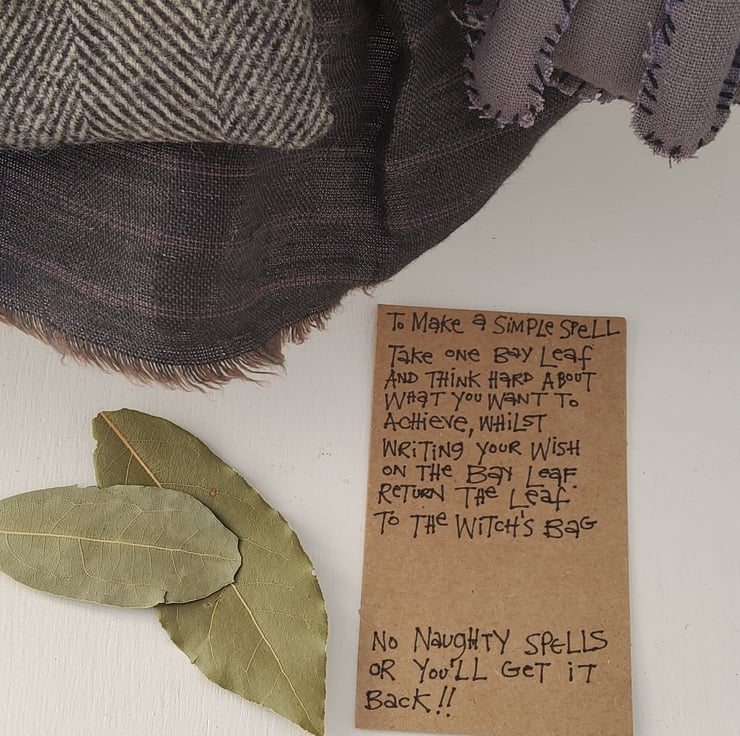 To Make a Simple Spell
Take one Bay Leaf
and think hard about
what you want to
achieve, whilst
writing your wish
on the Bay Leaf.
Return the Leaf
to the Witch's Bag
No Naughty Spells
or You'll get it
Back!!